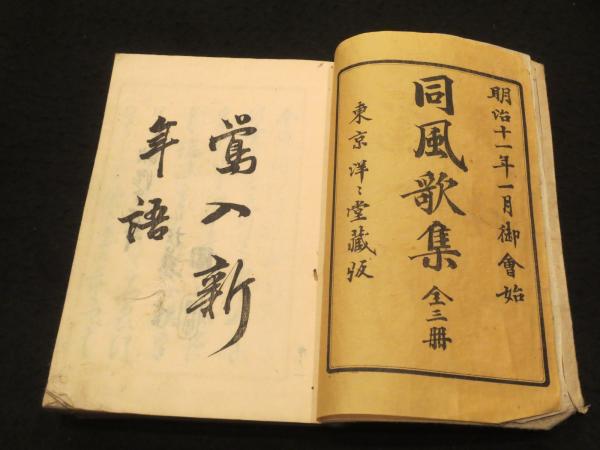 明治十一年一月御會始
同風歌集 全三冊
東京洋々堂藏版
鶯入新
年語